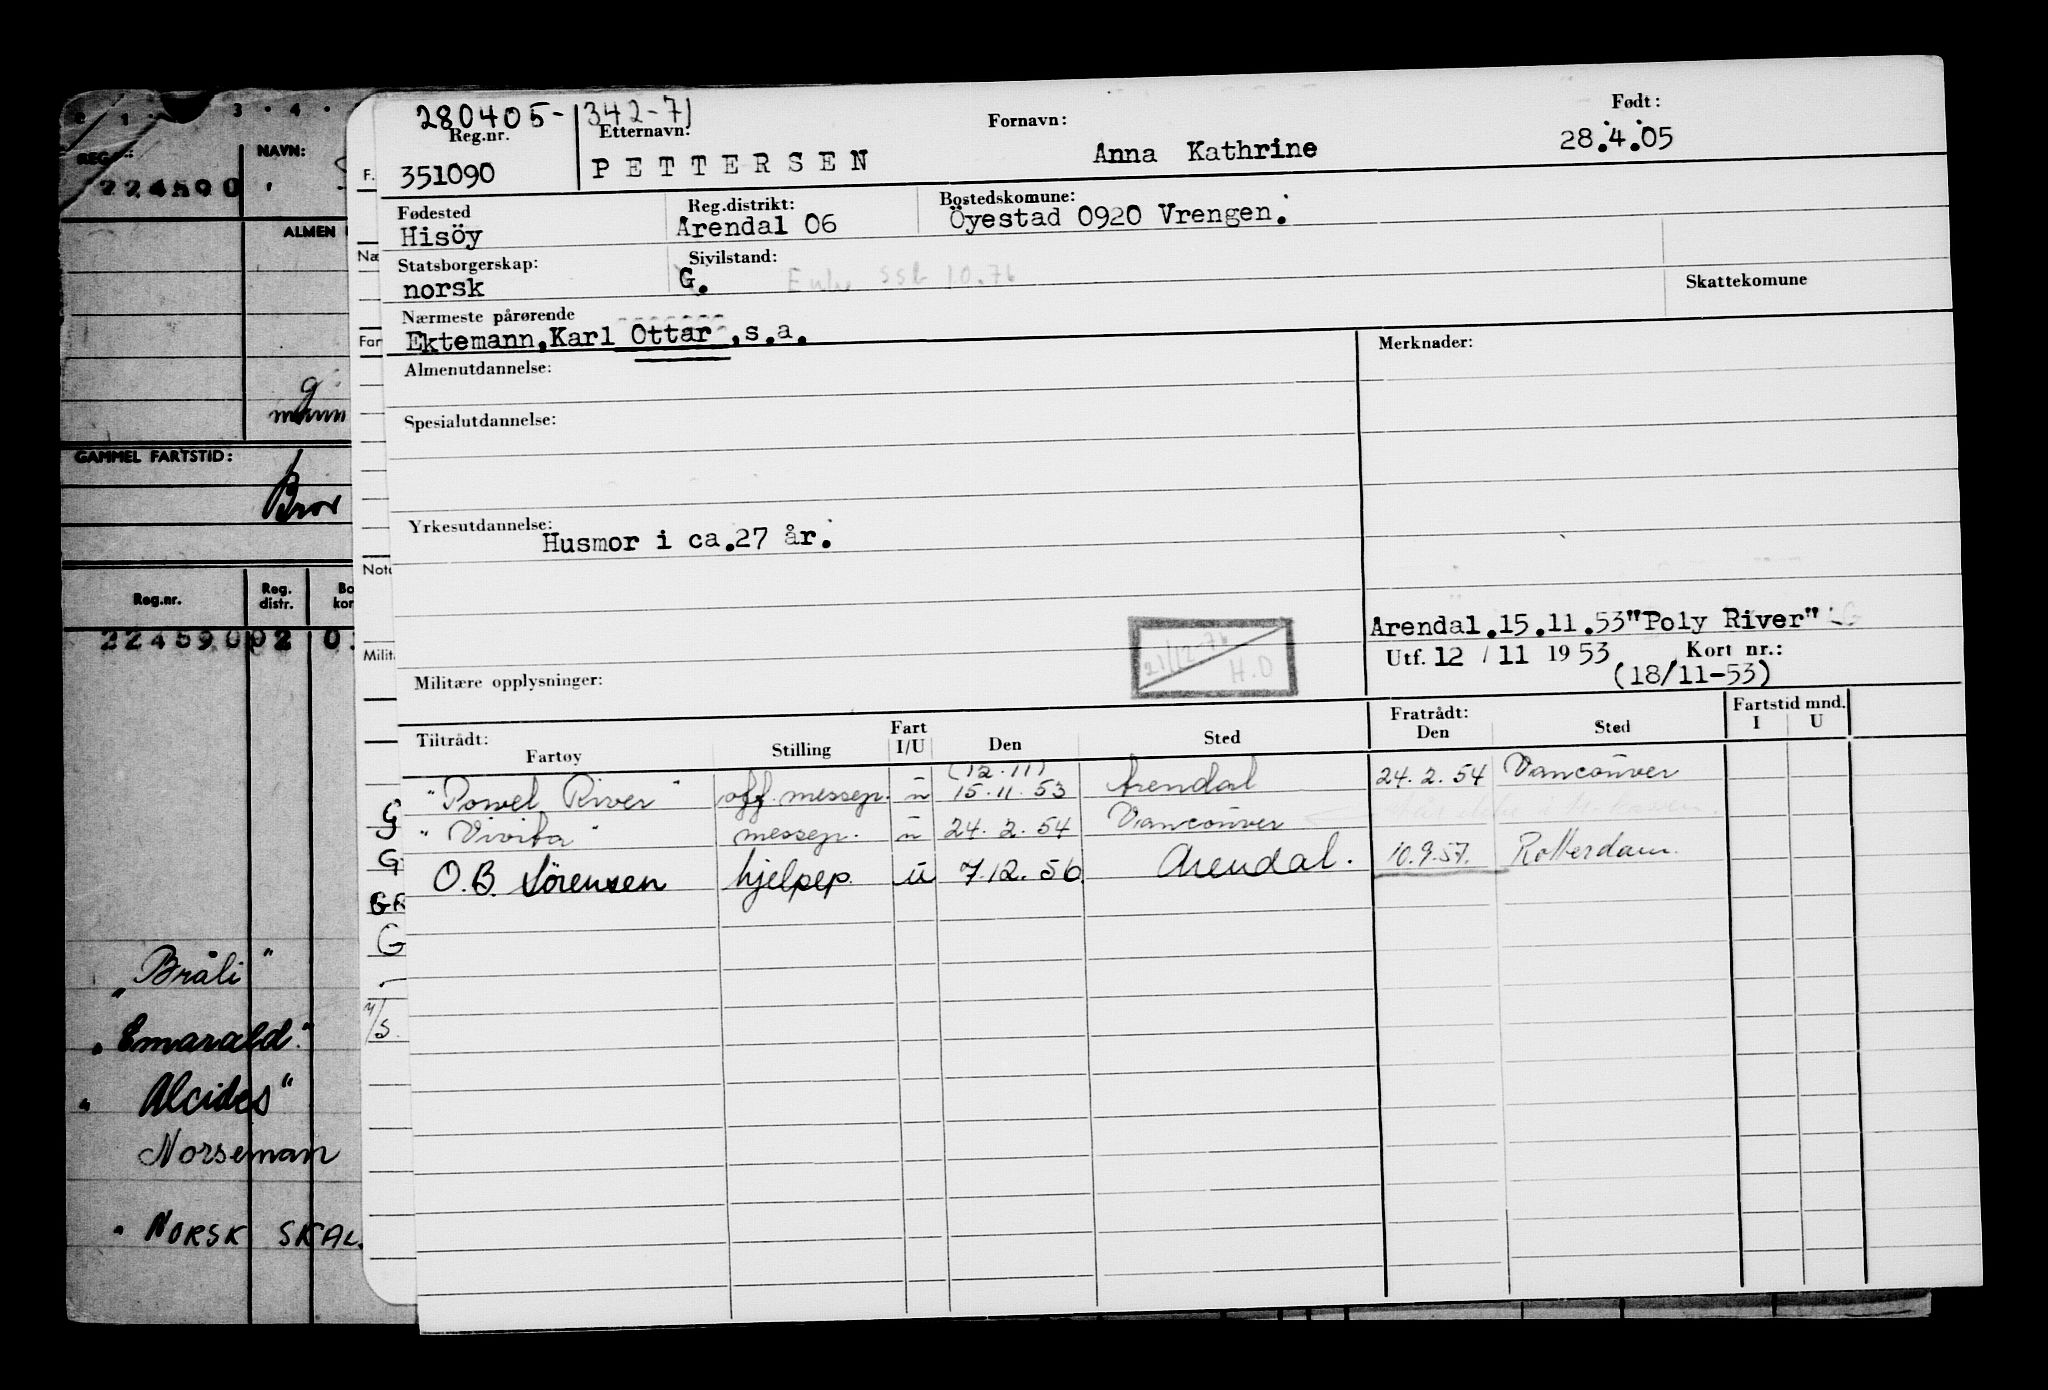 280405- 342-71
Reg.nr. Etternavn: Fornavn: Født:
351090 PETTERSEN Anna Kathrine 28.4.05
Fødested Reg.distrikt: Bostedskomune:
Hisöy Arendal 06 Öyestad 0920 Vrengen.
Statsborgerskap: Sivilstand: Skattekomune
norsk G. Enke ssb 10.76
Nærmeste pårørende
Ektemann, Karl Ottar, s.a.
Merknader:
Almenutdannelse:
Spesialutdannelse:
Yrkesutdannelse:
Husmor i ca.27 år.
Arendal.15.11.53"Poly River"
21/12-76 H.O
Utf. 12 / 11 1953 Kort nr.:
(18/11-53)
Militære opplysninger:
Tiltrådt: Fratrådt: Fartstid mnd.
Fartøy Stilling Fart I/U Den Sted Den Sted I U
(12.11)
"Powel River" off. messep. u 15.11.53 Arendal 24.2.54 Vancouver
"Vivita" messep. u 24.2.54 Vancouver
O.B. Sörensen hjelpep. u 7.12.56 Arendal. 10.9.57. Rotterdam.
1 3 · 4 ·
REG.NR.: NAVN:
224590
ALMEN
g
mann
GAMMEL FARTSTID:
Bror
Reg.nr. Reg. distr. Bo kor
224590 02 0
"Bråli"
"Emarald"
"Alcides"
Norseman
" NORSK SKAL.
F.
Næ
Far
Note
Milit
G
G
GR
G
M/S.